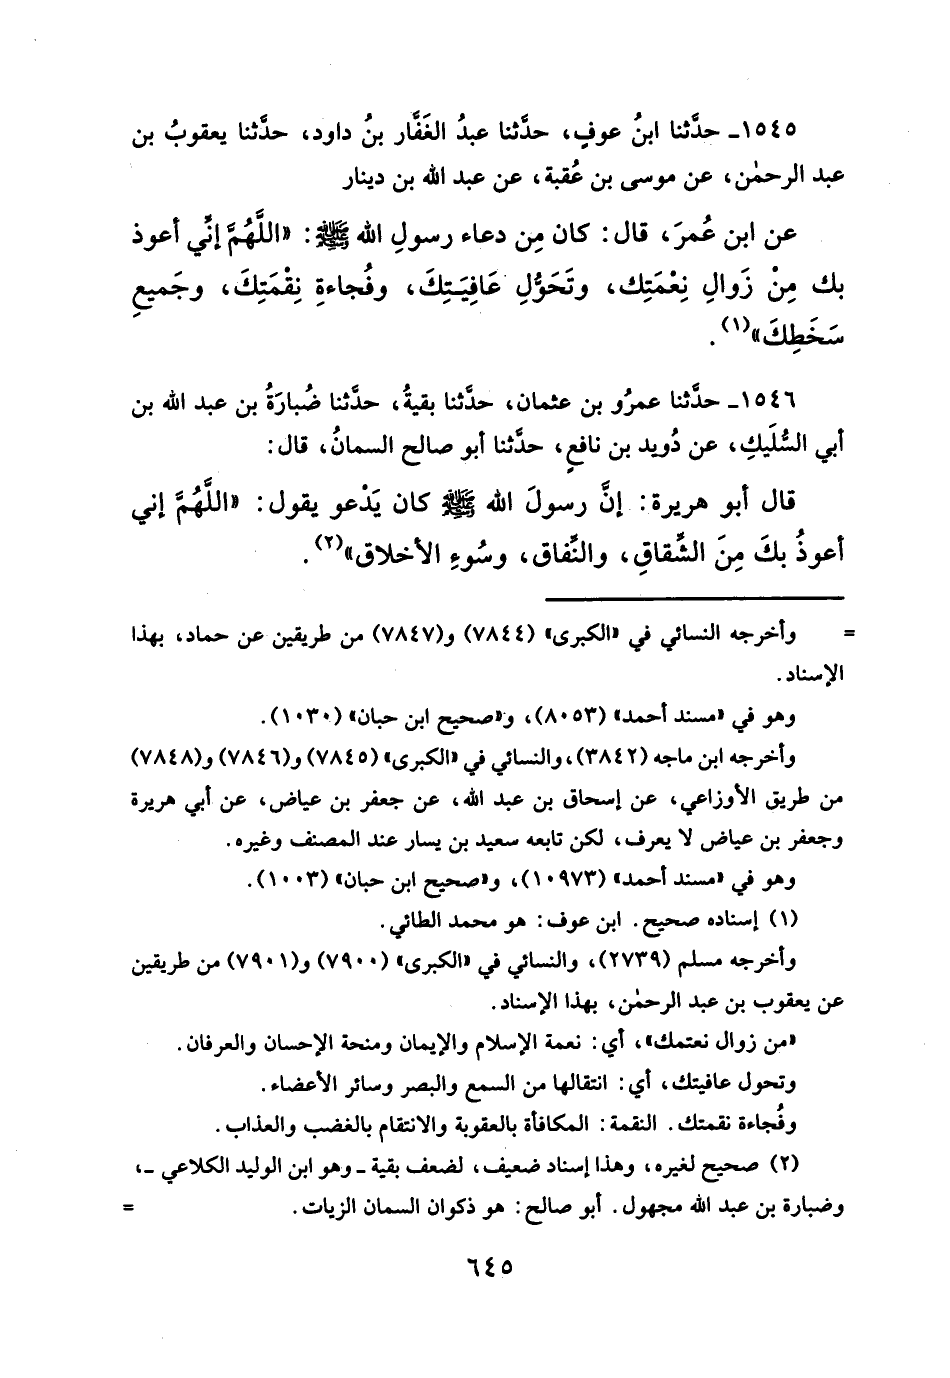 ١٥٤٥ـ حدَّثنا ابنُ عوفٍ، حدَّثنا عبدُ الغَفَّار بنُ داود، حدَّثنا يعقوبُ بن
عبد الرحمٰن، عن موسى بن عُقبة، عن عبد الله بن دينار
عن ابن عُمرَ، قال: كان مِن دعاء رسولِ الله ﷺ: «اللَّهُمَّ إنِّي أعوذ
بك مِنْ زَوالِ نِعْمَتِك، وتَحَوُّلِ عَافِيَتِكَ، وفُجاءةِ نِقْمَتِكَ، وجَميعِ
سَخَطِكَ»(١).
١٥٤٦ـ حدَّثنا عمرُو بن عثمان، حدَّثنا بقيةُ، حدَّثنا ضُبارَةُ بن عبد الله بن
أبي السُّلَيكِ، عن دُويد بن نافعٍ، حدَّثنا أبو صالح السمانُ، قال:
قال أبو هريرة: إنَّ رسولَ الله ﷺ كان يَدْعو يقول: «اللَّهُمَّ إني
أعوذُ بكَ مِنَ الشِّقاقِ، والنِّفاق، وسُوءِ الأخلاق»(٢).
= وأخرجه النسائي في «الكبرى» (٧٨٤٤) و(٧٨٤٧) من طريقين عن حماد، بهذا
الإسناد.
وهو في «مسند أحمد» (٨٠٥٣)، و«صحيح ابن حبان» (١٠٣٠).
وأخرجه ابن ماجه (٣٨٤٢)، والنسائي في «الكبرى» (٧٨٤٥) و(٧٨٤٦) و(٧٨٤٨)
من طريق الأوزاعي، عن إسحاق بن عبد الله، عن جعفر بن عياض، عن أبي هريرة
وجعفر بن عياض لا يعرف، لكن تابعه سعيد بن يسار عند المصنف وغيره.
وهو في «مسند أحمد» (١٠٩٧٣)، و«صحيح ابن حبان» (١٠٠٣).
(١) إسناده صحيح. ابن عوف: هو محمد الطائي.
وأخرجه مسلم (٢٧٣٩)، والنسائي في «الكبرى» (٧٩٠٠) و(٧٩٠١) من طريقين
عن يعقوب بن عبد الرحمٰن، بهذا الإسناد.
«من زوال نعتمك»، أي: نعمة الإسلام والإيمان ومنحة الإحسان والعرفان.
وتحول عافيتك، أي: انتقالها من السمع والبصر وسائر الأعضاء.
وفُجاءة نقمتك. النقمة: المكافأة بالعقوبة والانتقام بالغضب والعذاب.
(٢) صحيح لغيره، وهذا إسناد ضعيف، لضعف بقية ـ وهو ابن الوليد الكلاعي ـ،
وضبارة بن عبد الله مجهول. أبو صالح: هو ذكوان السمان الزيات. =
٦٤٥